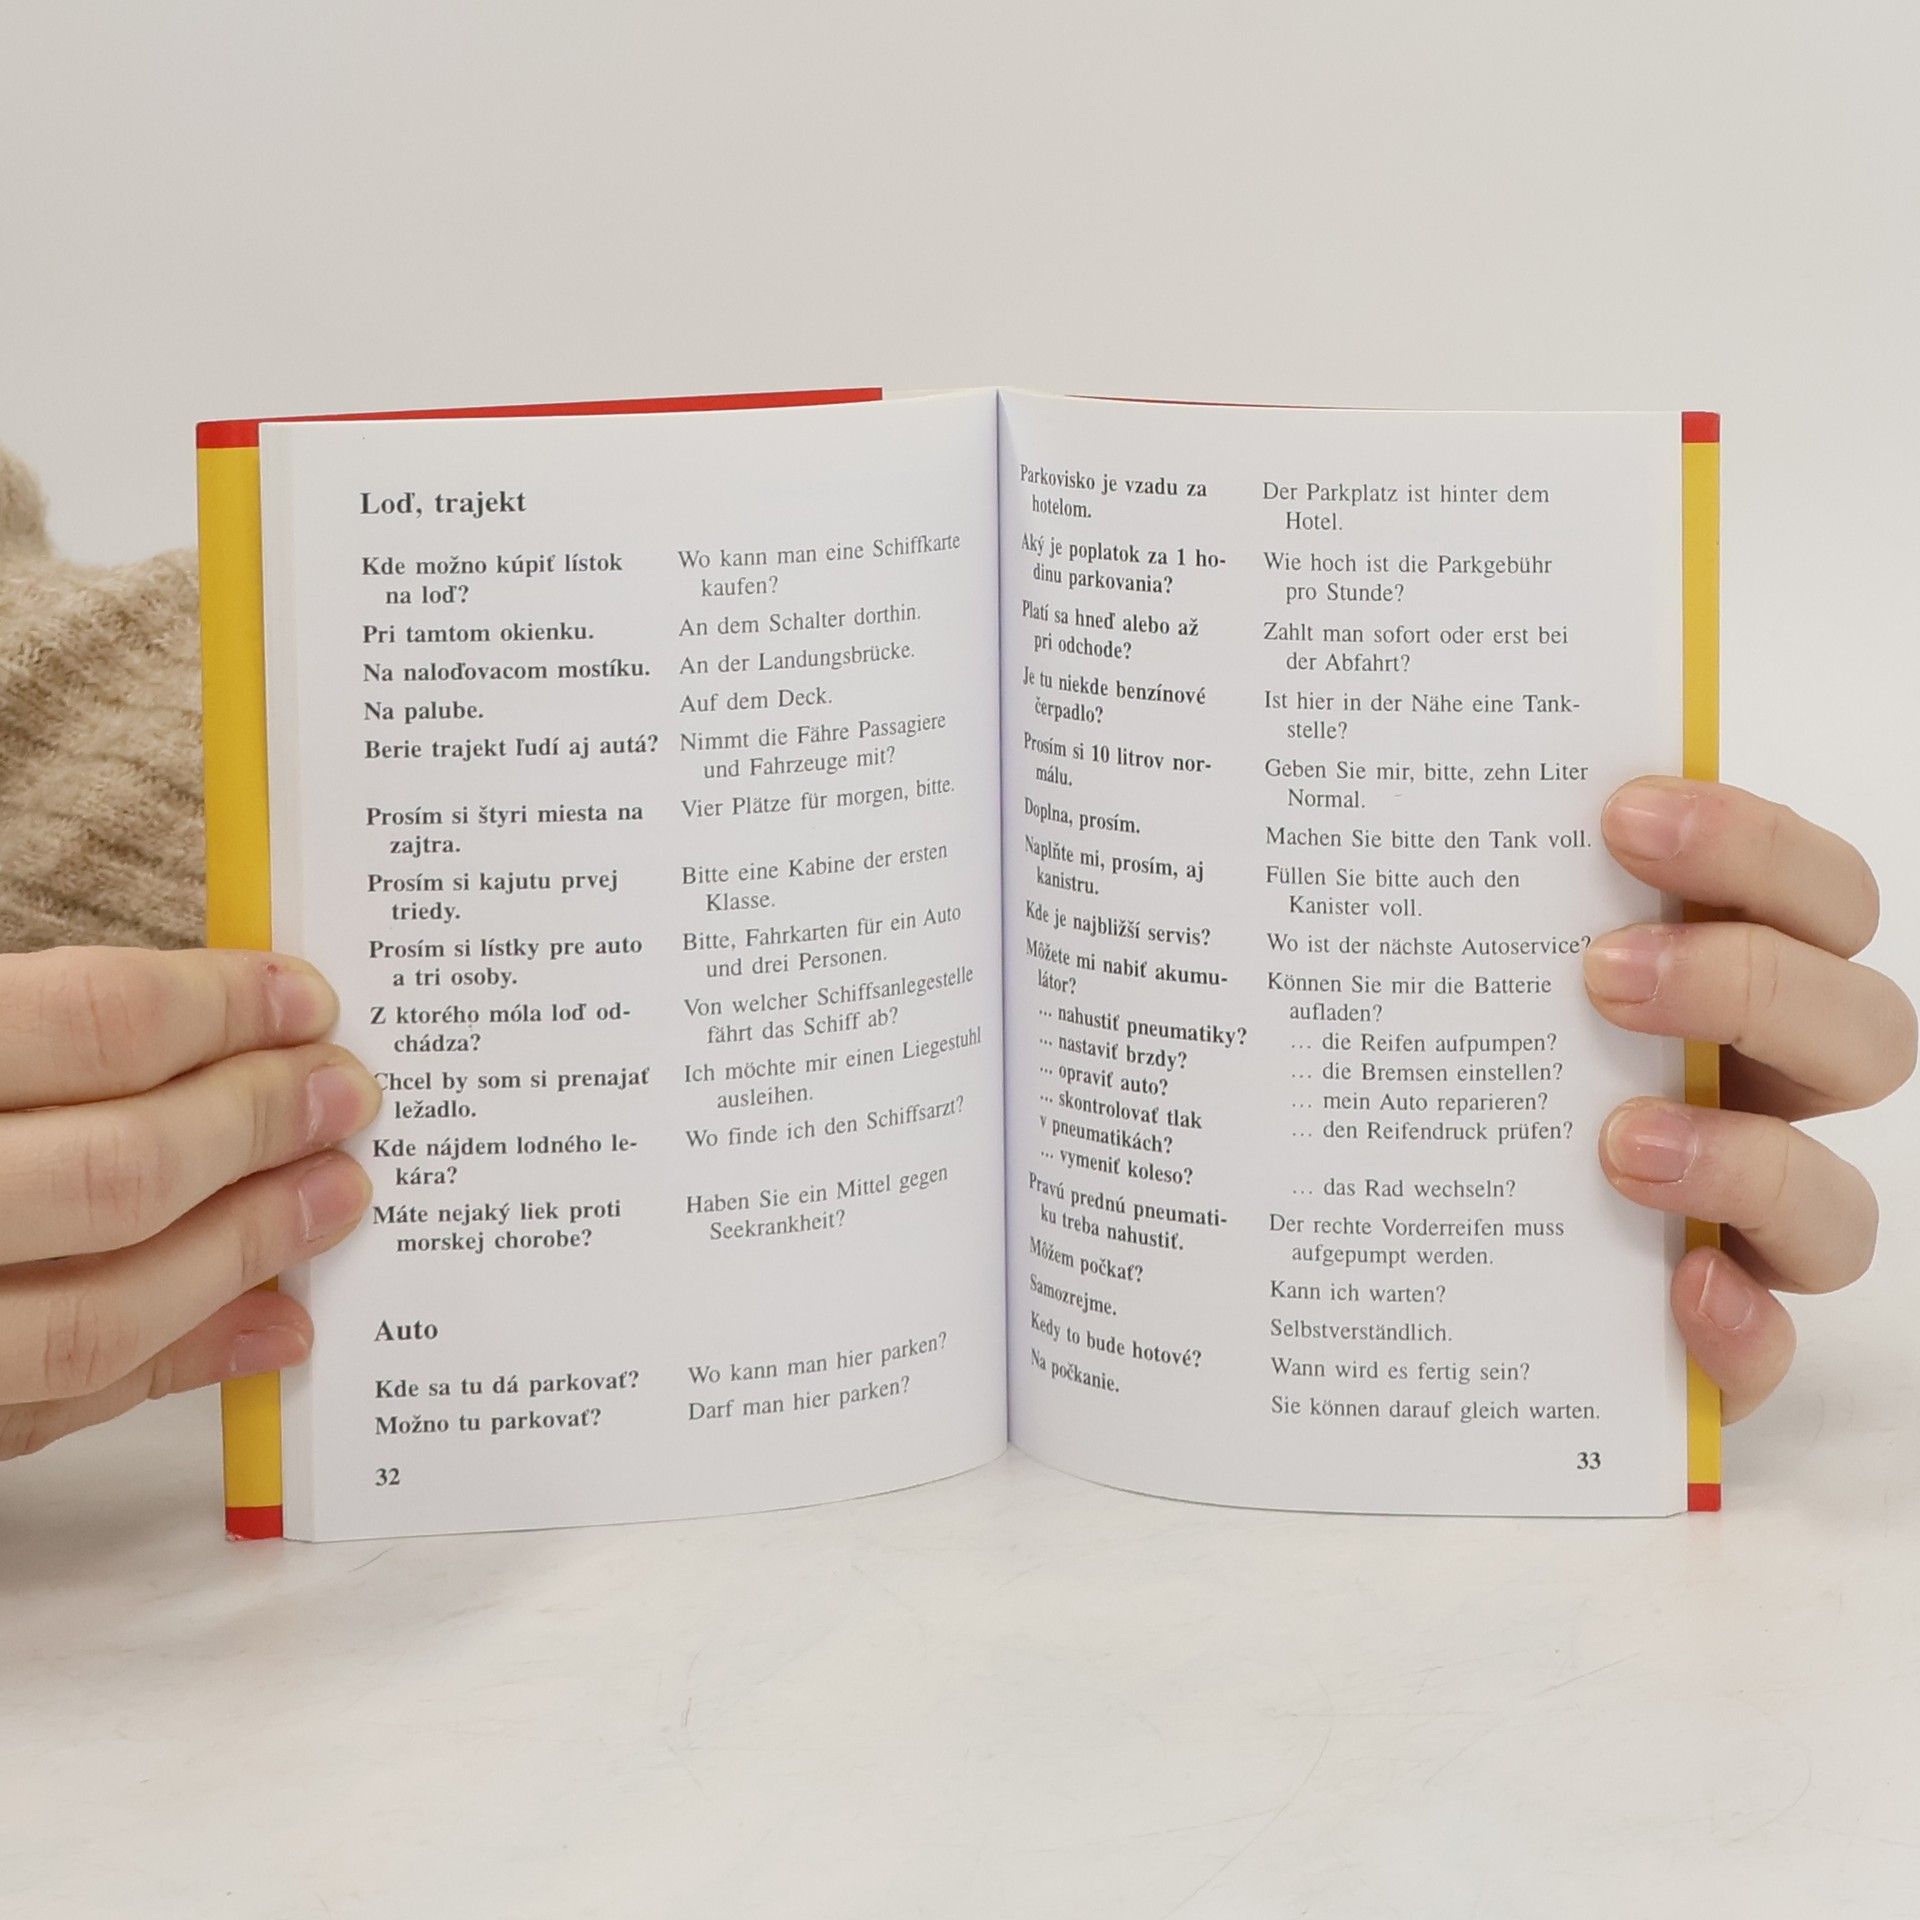 Loď, trajekt
Kde možno kúpiť lístok
na loď?
Wo kann man eine Schiffkarte
kaufen?
Pri tamtom okienku.
An dem Schalter dorthin.
Na naloďovacom mostíku.
An der Landungsbrücke.
Na palube.
Auf dem Deck.
Berie trajekt ľudí aj autá?
Nimmt die Fähre Passagiere
und Fahrzeuge mit?
Prosím si štyri miesta na
zajtra.
Vier Plätze für morgen, bitte.
Prosím si kajutu prvej
triedy.
Bitte eine Kabine der ersten
Klasse.
Prosím si lístky pre auto
a tri osoby.
Bitte, Fahrkarten für ein Auto
und drei Personen.
Z ktorého móla loď od-
chádza?
Von welcher Schiffsanlegestelle
fährt das Schiff ab?
Chcel by som si prenajať
ležadlo.
Ich möchte mir einen Liegestuhl
ausleihen.
Kde nájdem lodného le-
kára?
Wo finde ich den Schiffsarzt?
Máte nejaký liek proti
morskej chorobe?
Haben Sie ein Mittel gegen
Seekrankheit?
Auto
Kde sa tu dá parkovať?
Wo kann man hier parken?
Možno tu parkovať?
Darf man hier parken?
32
Parkovisko je vzadu za
hotelom.
Der Parkplatz ist hinter dem
Hotel.
Aký je poplatok za 1 ho-
dinu parkovania?
Wie hoch ist die Parkgebühr
pro Stunde?
Platí sa hneď alebo až
pri odchode?
Zahlt man sofort oder erst bei
der Abfahrt?
Je tu niekde benzínové
čerpadlo?
Ist hier in der Nähe eine Tank-
stelle?
Prosím si 10 litrov nor-
málu.
Geben Sie mir, bitte, zehn Liter
Normal.
Doplna, prosím.
Machen Sie bitte den Tank voll.
Naplňte mi, prosím, aj
kanistru.
Füllen Sie bitte auch den
Kanister voll.
Kde je najbližší servis?
Wo ist der nächste Autoservice?
Môžete mi nabiť akumu-
látor?
Können Sie mir die Batterie
aufladen?
... nahustiť pneumatiky?
... die Reifen aufpumpen?
... nastaviť brzdy?
... die Bremsen einstellen?
... opraviť auto?
... mein Auto reparieren?
... skontrolovať tlak
v pneumatikách?
... den Reifendruck prüfen?
... vymeniť koleso?
... das Rad wechseln?
Pravú prednú pneumati-
ku treba nahustiť.
Der rechte Vorderreifen muss
aufgepumpt werden.
Môžem počkať?
Kann ich warten?
Samozrejme.
Selbstverständlich.
Kedy to bude hotové?
Wann wird es fertig sein?
Na počkanie.
Sie können darauf gleich warten.
33